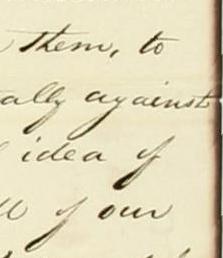 them, to
ally against
idea of
of our